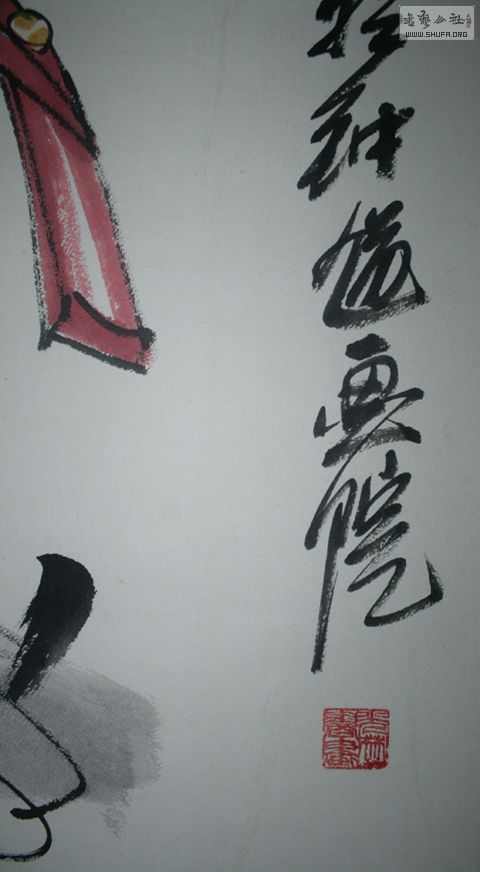 書藝公社
WWW.SHUFA.ORG
於钟馗画院